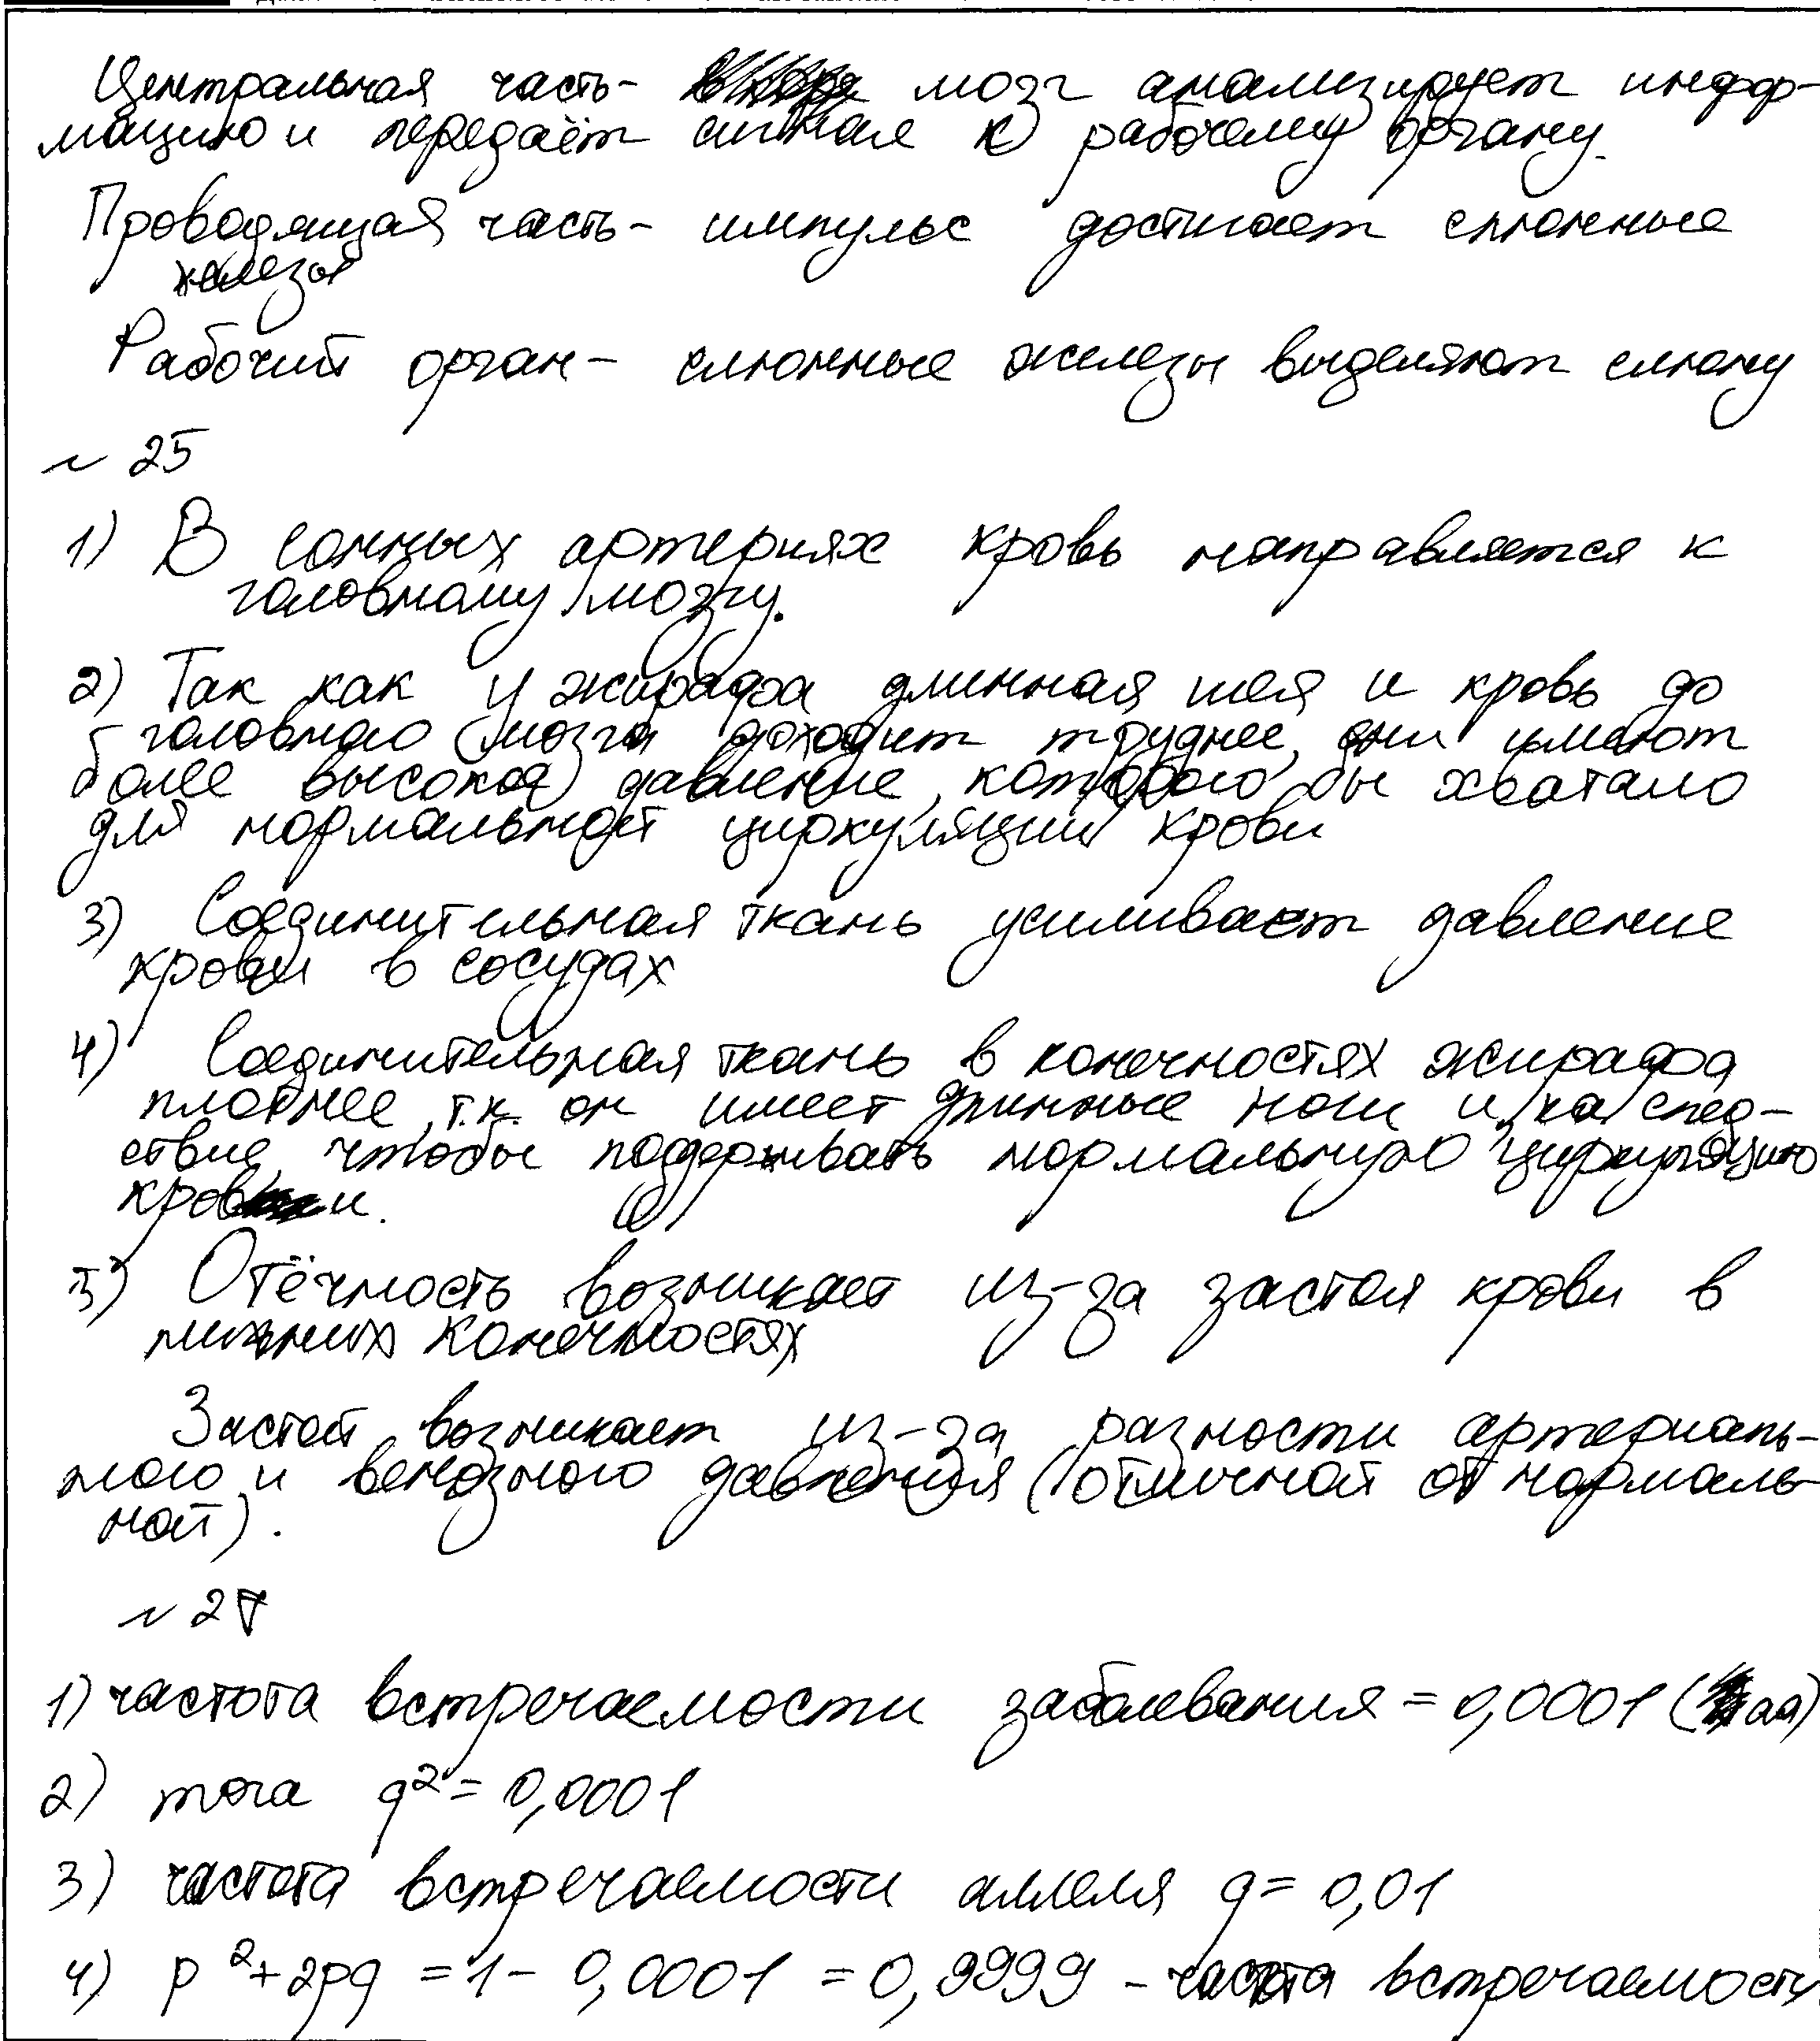 Центральная часть- мозг анализирует инфор-
мацию и передаёт сигнал к рабочему органу.
Проводящая часть- импульс достигает слюнные
железы
Рабочий орган- слюнные железы выделяют слюну
№ 25
1) В сонных артериях кровь направляется к
головному мозгу.
2) Так как у жирафа длинная шея и кровь до
головного мозга доходит труднее, они имеют
более высокое давление, которого бы хватало
для нормальной циркуляции крови
3) Соединительная ткань усиливает давление
крови в сосудах
4) Соединительная ткань в конечностях жирафа
плотнее, т.к. он имеет длинные ноги и, ка след-
ствие, чтобы поддерживать нормальную циркуляцию
крови.
5) Отёчность возникает из-за застоя крови в
нижних конечностях
Застой возникает из-за разности артериаль-
ного и венозного давления (отличной от нормаль-
ной).
№ 27
1) частота встречаемости заболевания = 0,0001 (аа)
2) тога q²= 0,0001
3) частота встречаемости аллеля q= 0,01
4) p²+2pq = 1- 0,0001 = 0,9999 - частота встречаемости